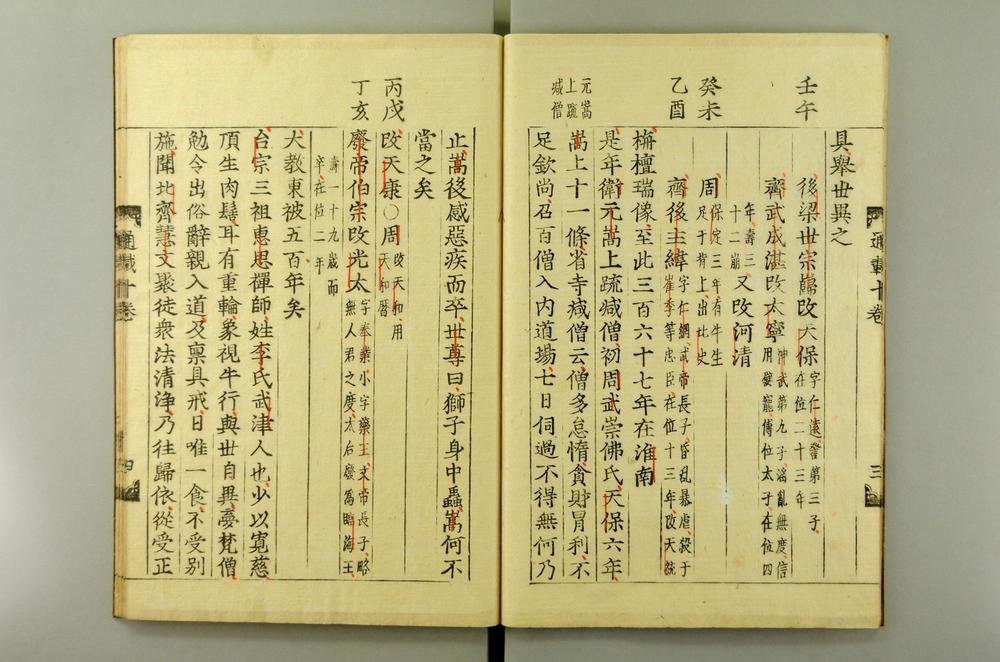 壬午
癸未
乙酉
元嵩
上䟽
减僧
具舉世異之
後梁世宗巋改天保
字仁遠詧第三子
在位二十三年
齊武成湛改太寧
神武第九子滛亂無度信
用嬖寵傳位太子在位四
年壽三
十二崩
又改河清
周
保定三年有牛生
足于背上出北史
齊後主緯
字仁綱武帝長子昏乱暴虐殺于
崔季等忠臣在位十三年改天統
栴檀瑞像至此三百六十七年在淮南
是年衛元嵩上疏减僧初周武崇佛氏天保六年
嵩上十一條省寺减僧云僧多怠惰貪財冐利不
足欽尚召百僧入内道場七日伺過不得無何乃
通載十卷
三
丙戌
丁亥
止嵩後感惡疾而卒世尊曰獅子身中蟲嵩何不
當之矣
改天康○周
改天和用
天和曆
廢帝伯宗改光太
字奉業小字藥王文帝長子略
無人君之度太后廢為臨海王
壽一十九歳而
卒在位二年
大教東被五百年矣
台宗三祖惠思禪師姓李氏武津人也少以寬慈
頂生肉髻耳有重輪象視牛行與世自異夢梵僧
勉令出俗辭親入道及禀具戒日唯一食不受别
施聞北齊慧文聚徒衆法清淨乃往歸依從受正
通載十卷
四